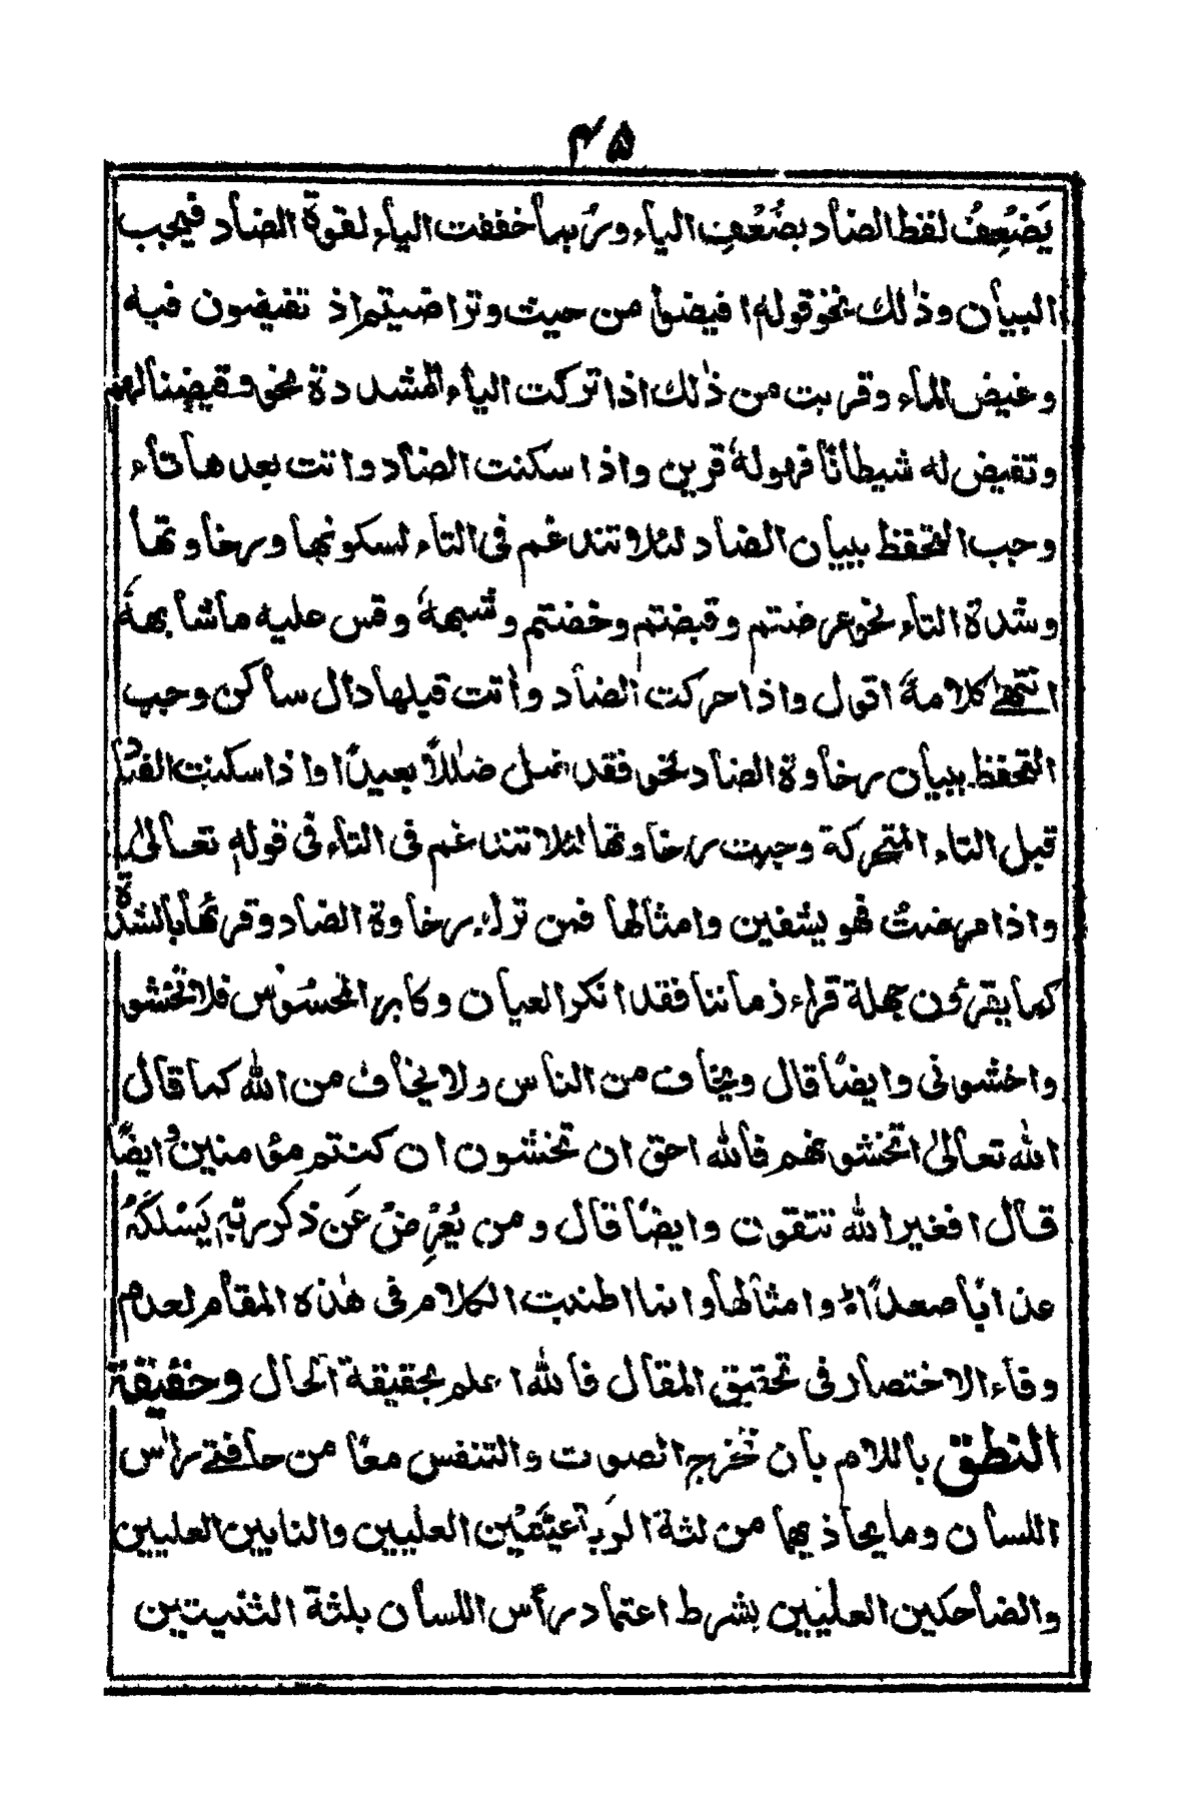 ۴۵
يَضعُفُ لفظ الضاد بضُعُفِ الياء وربما خففت الياء لقوة الضاد فيجب
البيان وذٰلك نحو قوله افيضوا من حيث وتراضيتم اذ تفيضون فيه
وغيض الماء وقربت من ذٰلك اذا تركت الياء المشددة نحو وقيضنا لهم
وتقيض له شيطانًا فهو له قرين واذا سكنت الضاد واتت بعدها تاء
وجب التحفظ ببيان الضاد لئلا تندغم فى التاء لسكونها ورخاوتها
وشدة التاء نحو عرضتم وقبضتم وخضتم وشبهه وقس عليه ما شابهه
انتهى كلامه اقول واذا حركت الضاد وأتت قبلها دال ساكن وجب
التحفظ ببيان رخاوة الضاد نحو فقد ضل ضلٰلاً بعيدًا واذا سكنت الضاد
قبل التاء المتحركة وجبت رخاوتها لئلا تندغم فى التاء فى قوله تعالىٰ
واذا مرضتُ فهو يشفين وامثالها فمن ترك رخاوة الضاد وقرئها بالشدة
كما يقرؤن جهلة قراء زماننا فقد انكر العيان وكابر المحسوس فلا تخشو
واخشونى وايضًا قال ويخاف من الناس ولا يخاف من الله كما قال
الله تعالىٰ اتخشونهم فالله احق ان تخشون ان كنتم مؤمنين وايضًا
قال افغير الله تتقون وايضًا قال ومن يُعْرِضْ عَن ذكر ربّه يَسْلكَهُ
عذابًا صعدًا وامثالها وانما اطنبت الكلام فى هٰذه المقام لعدم
وقاء الاختصار فى تحقيق المقال فالله اعلم بحقيقة الحال وحقيقة
النطق باللام بان تخرج الصوت والتنفس معًا من حافتے راس
اللسان وما يحاذيهما من لثة الرباعيتين العليين والنابين العليين
والضاحكين العليين بشرط اعتماد رأس اللسان بلثة الثنيتين